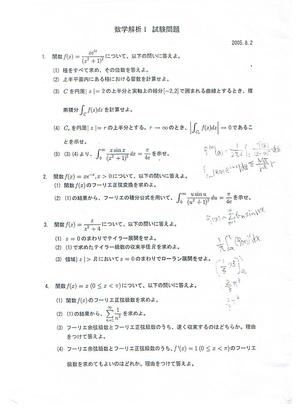 数学解析Ⅰ 試験問題
2005.8.2
1. 関数 f(z) = ze^{iz}/(z²+1)² について,以下の問いに答えよ。
(1) 極をすべて求め,その位数を答えよ。
(2) 上半平面内にある極における留数を計算せよ。
(3) C を円周 |z| = 2 の上半分と実軸上の線分 [-2,2] で囲まれる曲線とするとき,複
素積分 ∫_C f(z)dz を計算せよ。
(4) C_r を円周 |z| = r の上半分とする。r → ∞ のとき, |∫_{C_r} f(z)dz| → 0 であるこ
とを示せ。
(5) (3) (4) より, ∫_0^∞ x sin x/(x²+1)² dx = π/4e を示せ。
2. 関数 f(x) = xe^{-x}, x > 0 について,以下の問いに答えよ。
(1) 関数 f(x) のフーリエ正弦変換を求めよ。
(2) (1) の結果から,フーリエの積分公式を用いて, ∫_0^∞ u sin u/(u²+1)² du = π/4e を示せ。
3. 関数 f(z) = z/(z²+4) について,以下の問いに答えよ。
(1) z = 0 のまわりでテイラー展開をせよ。
(2) (1) で求めたテイラー級数の収束半径を求めよ。
(3) 領域 |z| > R において z = 0 のまわりでローラン展開をせよ。
4. 関数 f(x) = x (0 ≤ x < π) について,以下の問いに答えよ。
(1) 関数 f(x) のフーリエ正弦級数を求めよ。
(2) (1) の結果から, を求めよ。
(3) フーリエ余弦級数とフーリエ正弦級数のうち,速く収束するのはどちらか。理由
をつけて答えよ。
(4) フーリエ余弦級数とフーリエ正弦級数のうち, f'(x) = 1 (0 ≤ x < π) のフーリエ
級数を求めてもよいのはどれか。理由をつけて答えよ。